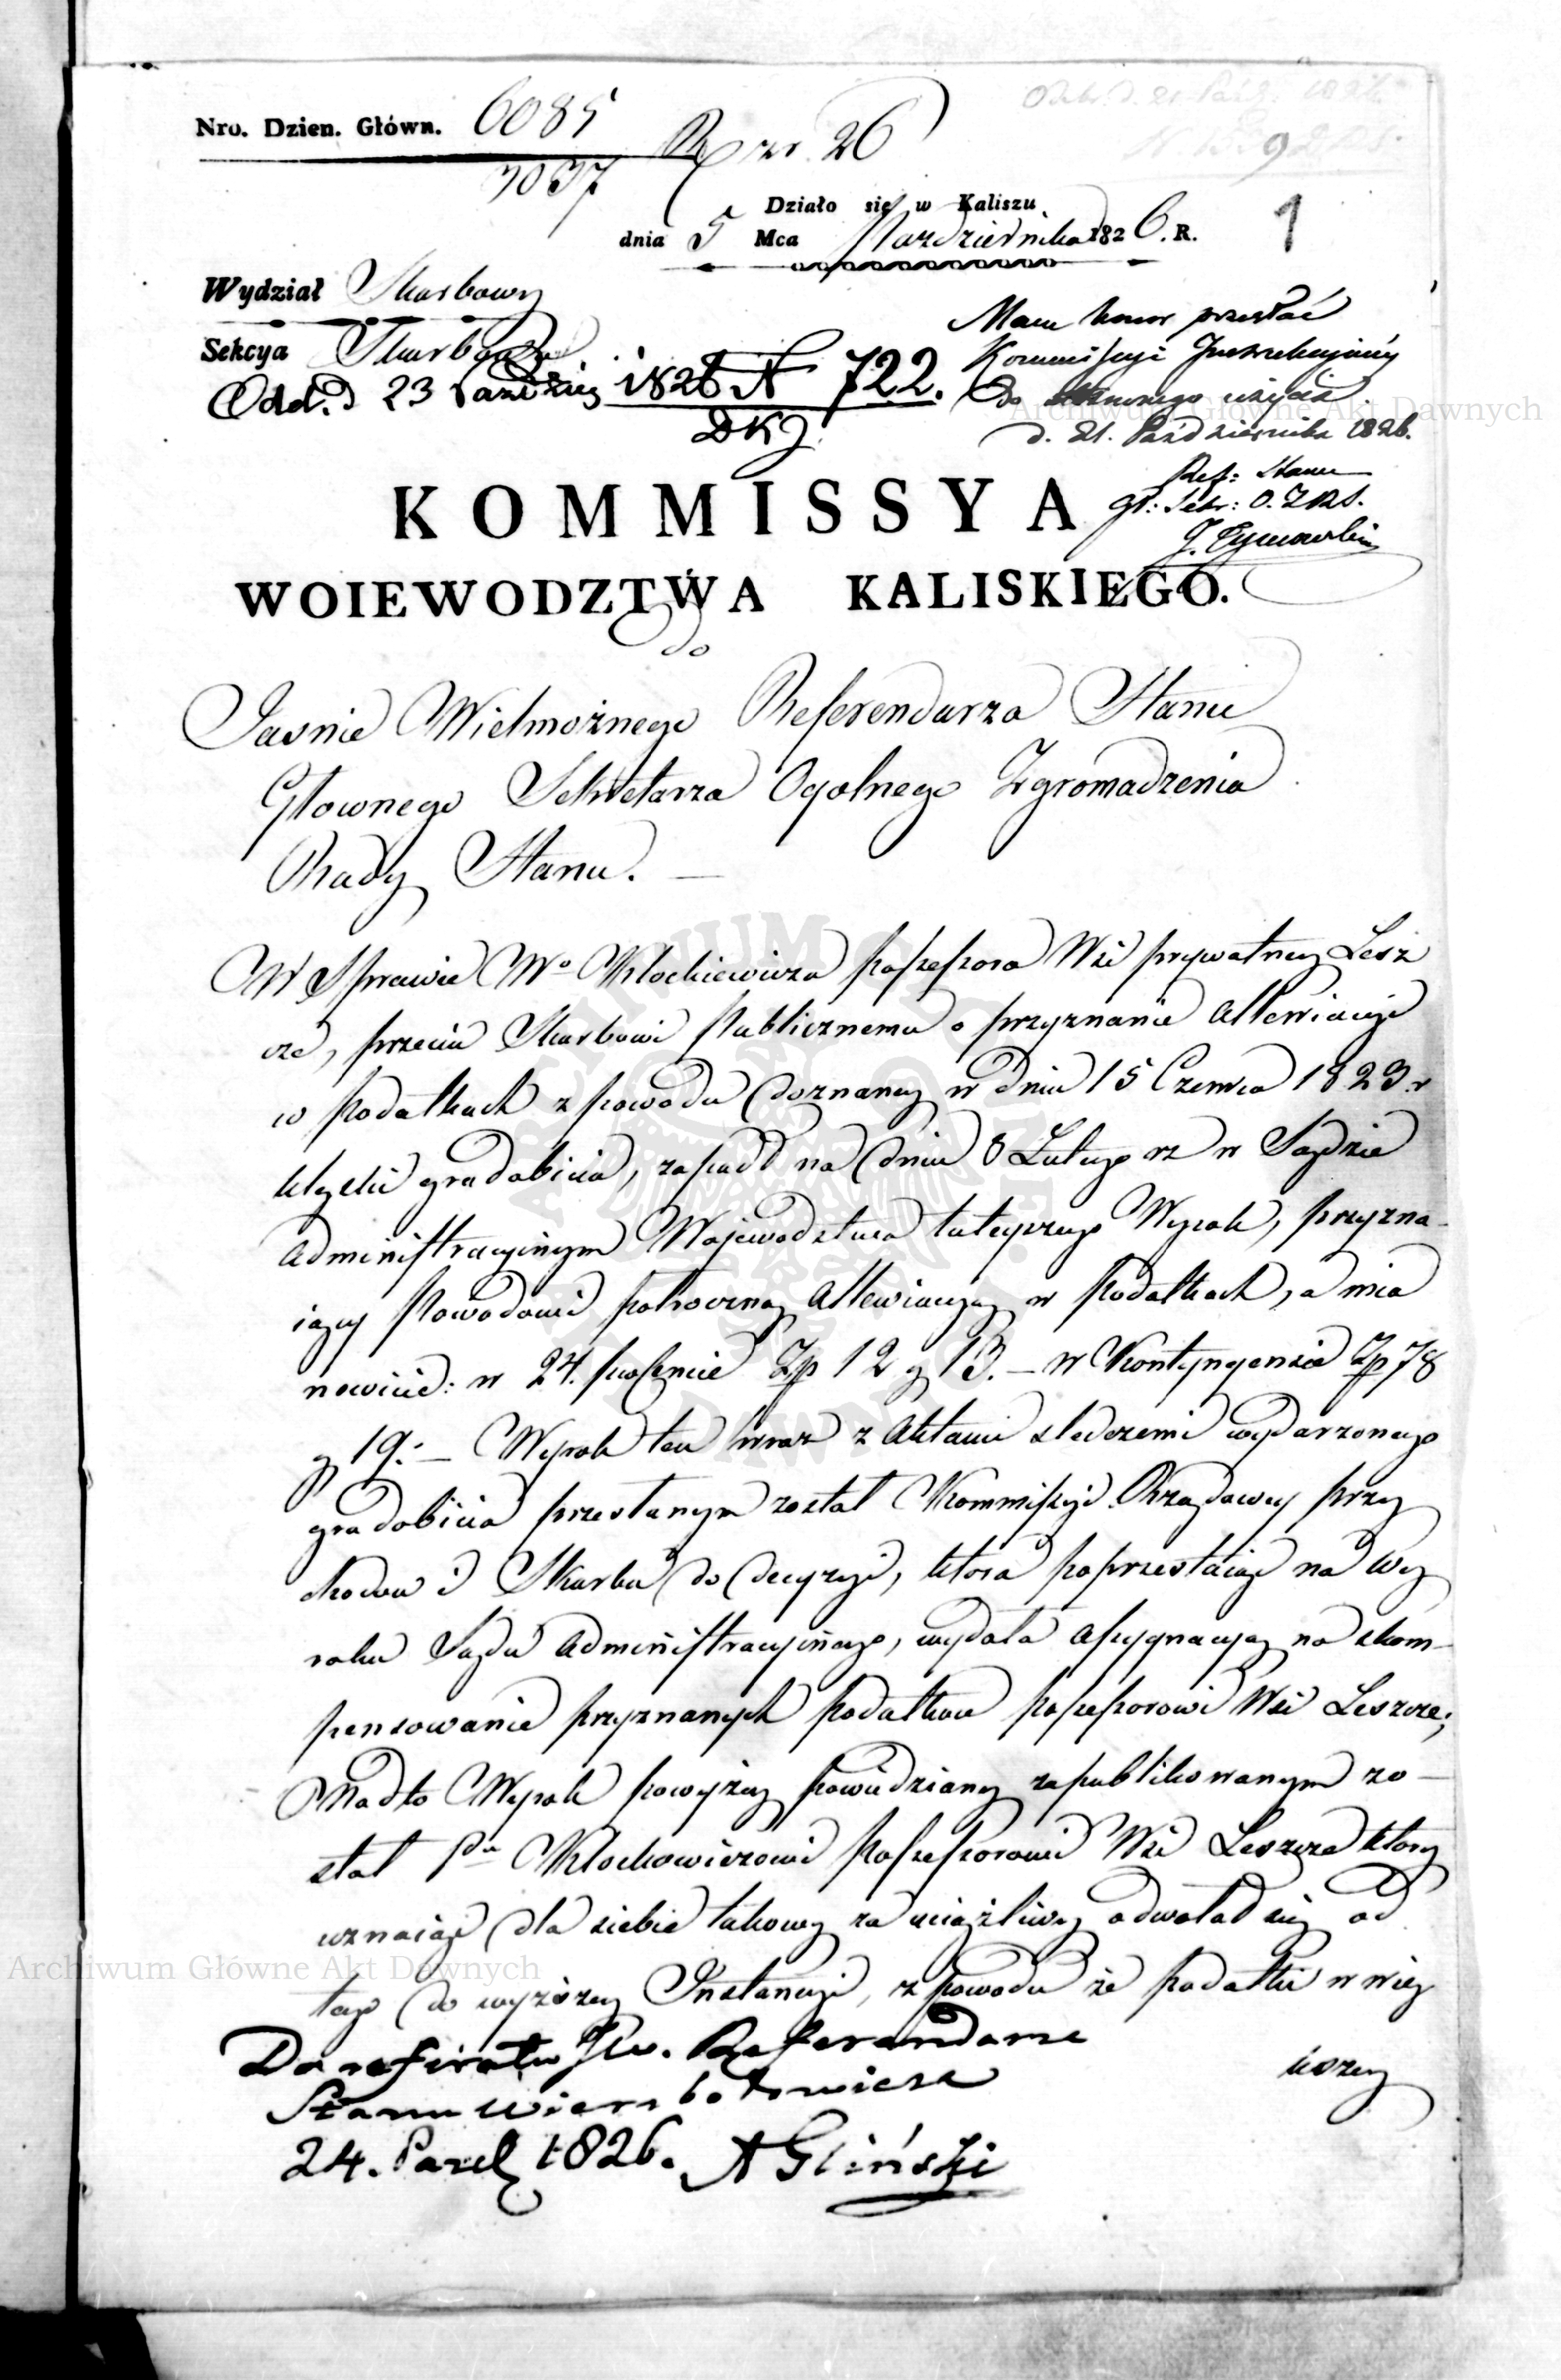 Nro. Dzien. Główn. 6085
7037
Rzr. 26
Odebr. d. 21 Paźd. 1826
9
1
Działo się w Kaliszu
dnia 5 Mca Pazdziernika 1826. R.
Wydział Skarbowy
Sekcya Skarbowa
Odd. d 23 Paźdźier 1826 N 722.
DKJ.
Mam honor przesłać
Kommissyi Instrukcyiney
do użycia.
d. 21. Październike 1826.
Ref: Stanu
Gł: Sekr: O. Z RS.
J. Tymowski
KOMMISSYA
WOIEWODZTWA KALISKIEGO.
do
Jasnie Wielmożnego Referendarza Stanu
Głownego Sekretarza Ogolnego Zgromadzenia
Rady Stanu. —
W Sprawie Wo Kłockiewicza possessora Wsi prywatney Lesz
cze, przeciw Skarbowi Publicznemu o przyznanie allewiacyi
w podatkach z powodu doznaney w dniu 15 Czerwca 1823 r
klęski gradobicia, zapadł na dniu 8 Lutego rz w Sądzie
Administracyinym Wojewodztwa tuteyszego Wyrok, przyzna-
iący Powodowi połroczną allewiacyą w podatkach, a mia
nowicie: w 24. possemie Zp 12 g 13. — w Kontyngensie Zp 78
g 19: — Wyrok ten wraz z aktami sledczemi wydarzonego
gradobicia przesłanym został Kommissyi Rządowey przy
chodow i Skarbu do decyzyi, ktora poprzestaiąc na Wy
roku Sądu Administracyinego, wydała assygnacyą na skom-
pensowanie przyznanych podatkow possessorowi Wsi Leszcze;
Nadto Wyrok powyżey powiedziany zapublikowanym zo-
stał Pu Kłockowiczowi possessorowi Wsi Leszcze ktory
uznaiąc dla siebie takowy za uciążliwy odwołał się od
tego do wyższey Instancyi, z powodu że podatki w więk
kszey
Do referatu JW. Referendarza
Stanu Wierzbołowicza
24. Pazdz 1826. A Gliński
Archiwum Główne Akt Dawnych
Archiwum Główne Akt Dawnych
ARCHIWUM GŁÓWNE AKT DAWNYCH